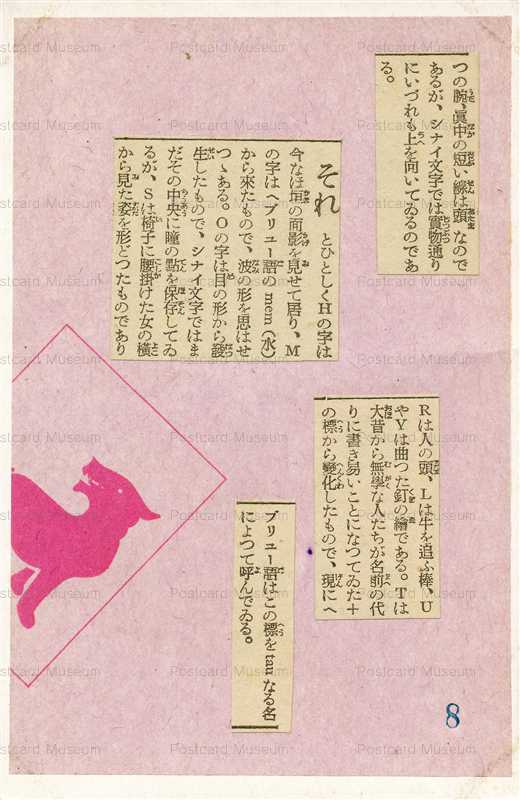 つの腕、眞中の短い線は頭なので
あるが、シナイ文字では實物通り
にいづれも上を向いてゐるのであ
る。
それ とひとしくHの字は
今なほ垣の面影を見せて居り、M
の字はヘブリュー語のmem（水）
から來たもので、波の形を思はせ
つゝある。Oの字は目の形から發
生したもので、シナイ文字ではま
だその中央に瞳の點を保存してゐ
るが、Sは椅子に腰掛けた女の橫
から見た姿を形どつたものであり
Rは人の頭、Lは牛を追ふ棒、U
やYは曲つた釘の繪である。Tは
大昔から無學な人たちが名前の代
りに書き易いことになつてゐた十
の標から變化したもので、現にヘ
ブリュー語はこの標をtauなる名
によつて呼んでゐる。
8
Postcard Museum